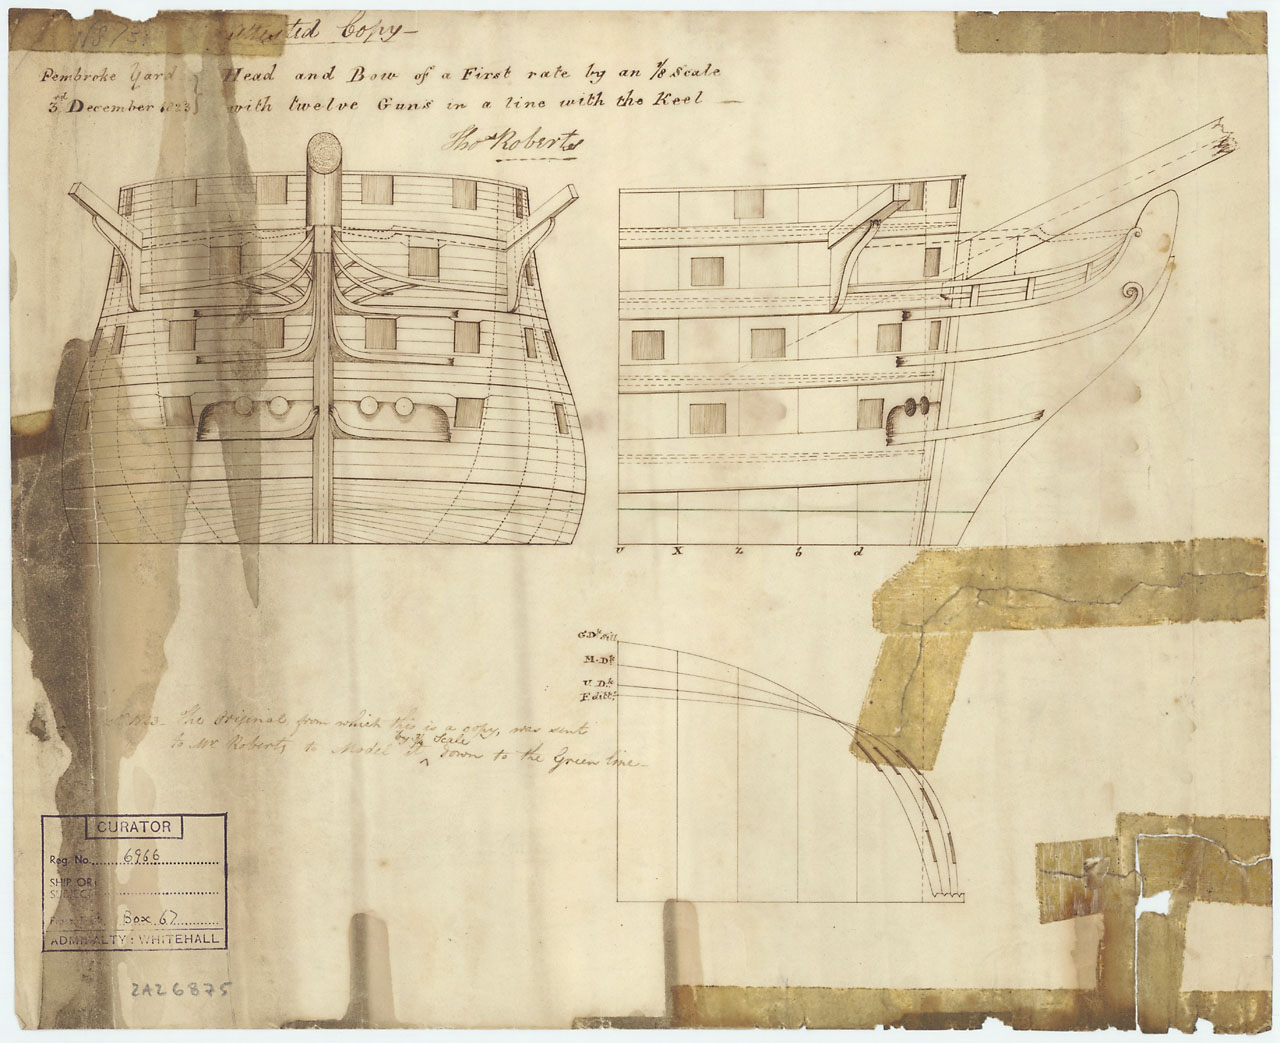 118/3
Attested Copy—
Pembroke Yard } Head and Bow of a First rate by an 1/8 Scale
3rd December 1823 } with twelve Guns in a line with the Keel —
Thos Roberts
U X Z b d
G.Dk sill
M.Dk
U.Dk
F. ditto
The Original from which this is a copy, was sent
to Mr Roberts to Model it by 1/4 Scale down to the Green line—
CURATOR
Reg. No. 6966
SHIP OR
SUBJECT
Box 67
ADMIRALTY: WHITEHALL
ZAZ6875